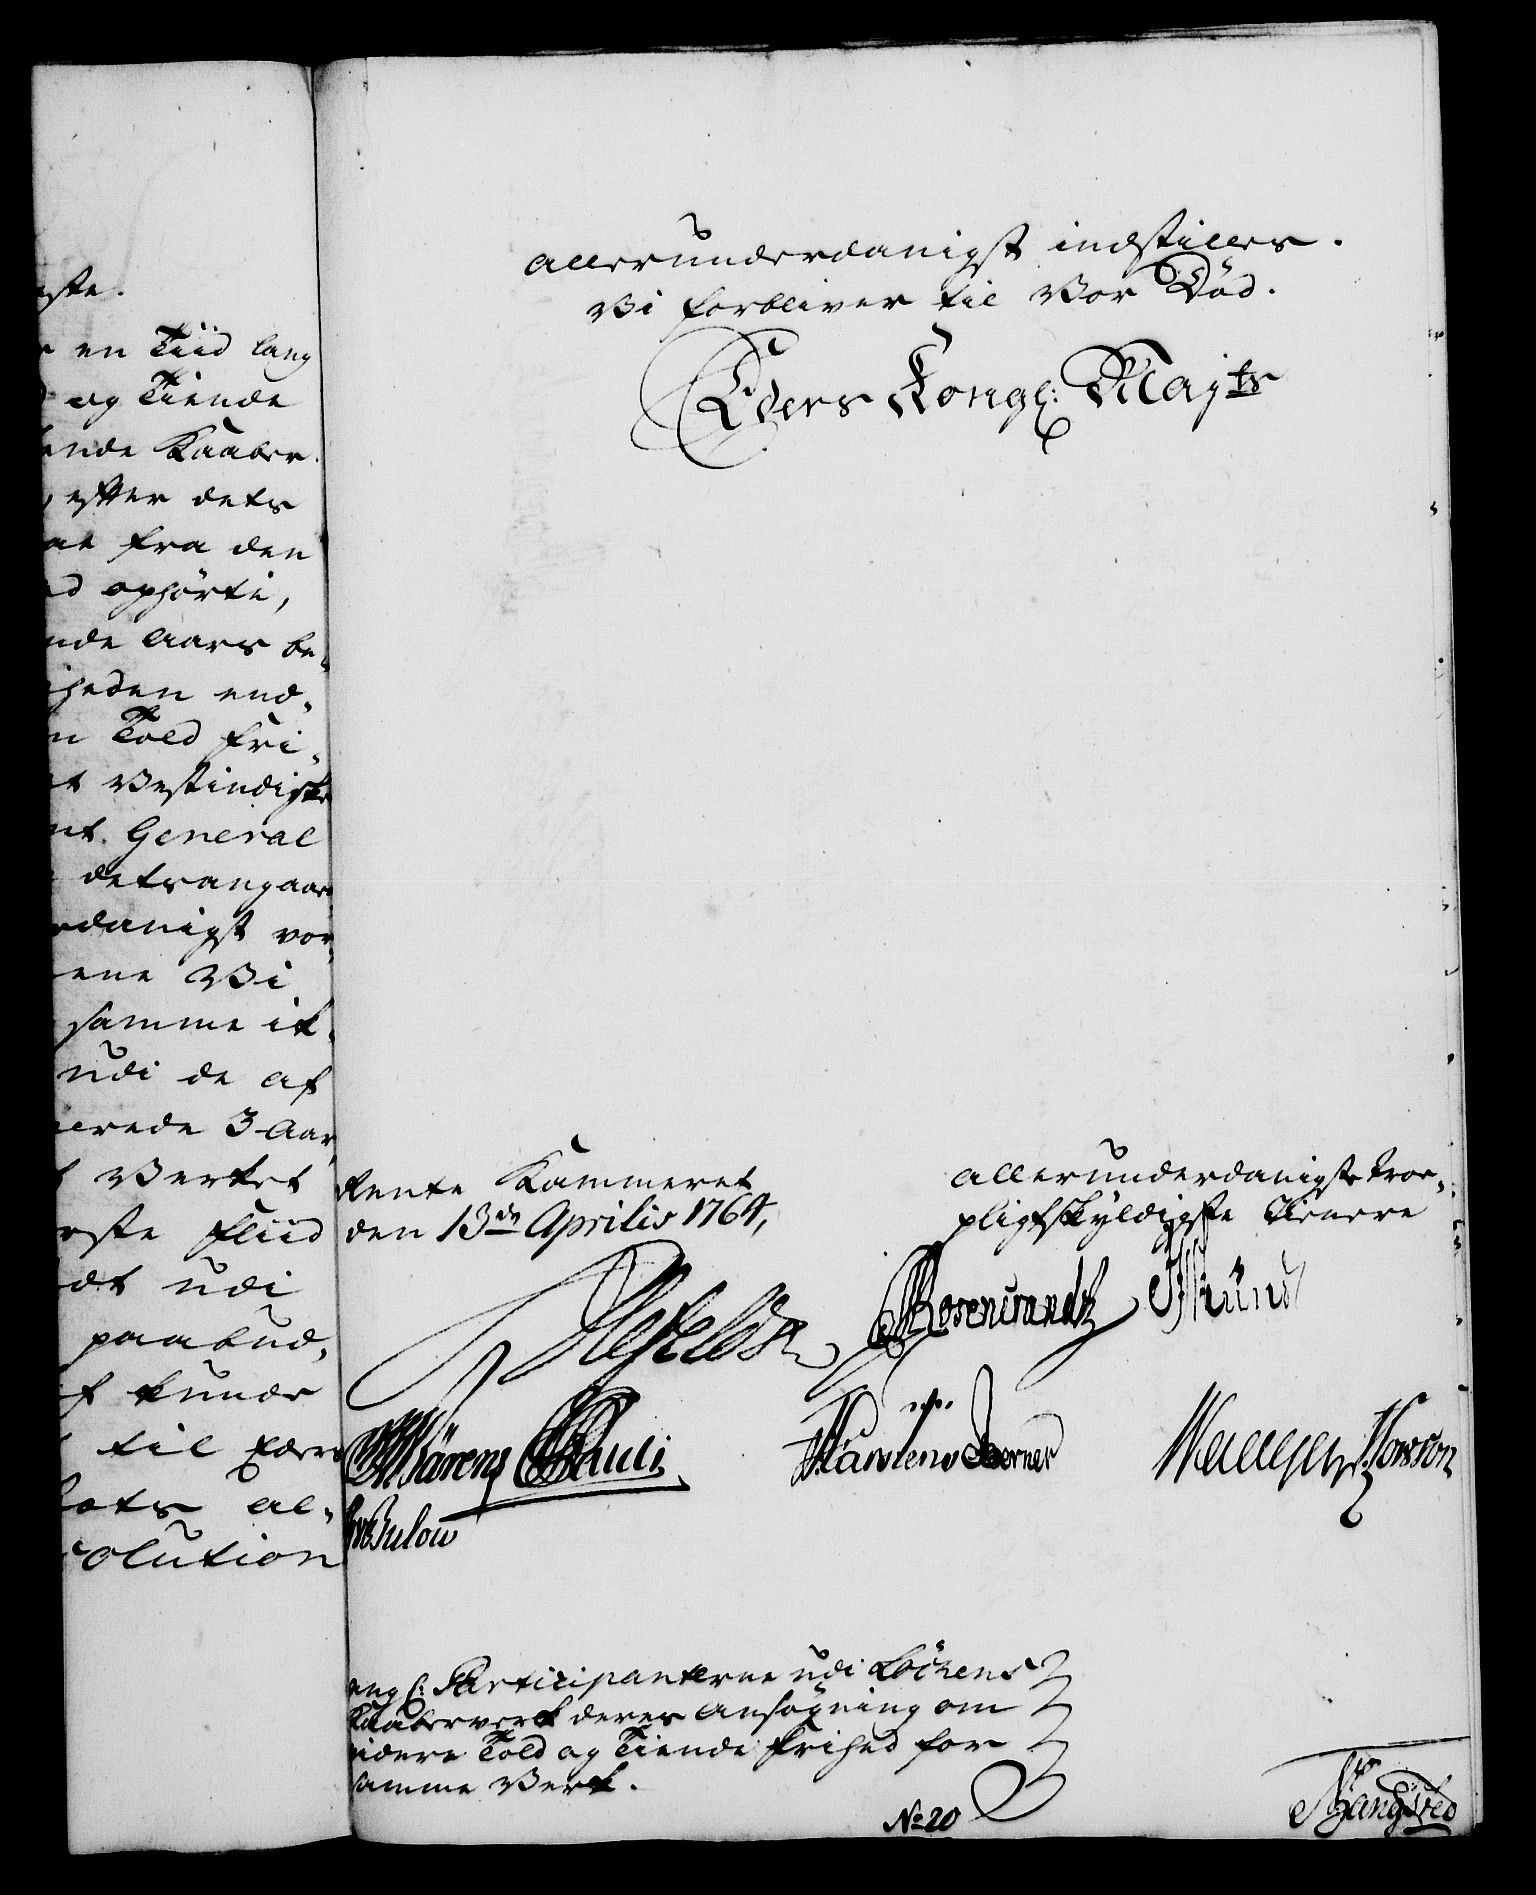 este.
en Tiid lang
og Tiende
ende Kaaber
efter dets
fra den
ophørte,
nde Aars be¬
gheden end¬
n Told fri¬
t Vestindiske
nt. General
detsangaa
rdanigst vor¬
ene Vi
samme ik¬
udi de af
erede 3 Aar,
t Verket
rste Fliid
dt udi
paabud¬
f kunde
til
ots al¬
solution
allerunderdanigst indstilles.
Vi forbliver til Vor Død.
Eders Kongl: Mayts
Rente Kammeret
den 13de Aprilis 1764,
allerunderdanigste troe¬
pligtskyldigste Tienere
Rosencrandtz
Bärens Pauli
Karstens Berner
Bülow
ang: Participanterne udi Lochens
Kaaberverk deres Ansøgning om
videre Told og Tiende Frihed for
samme Verk.
No 20